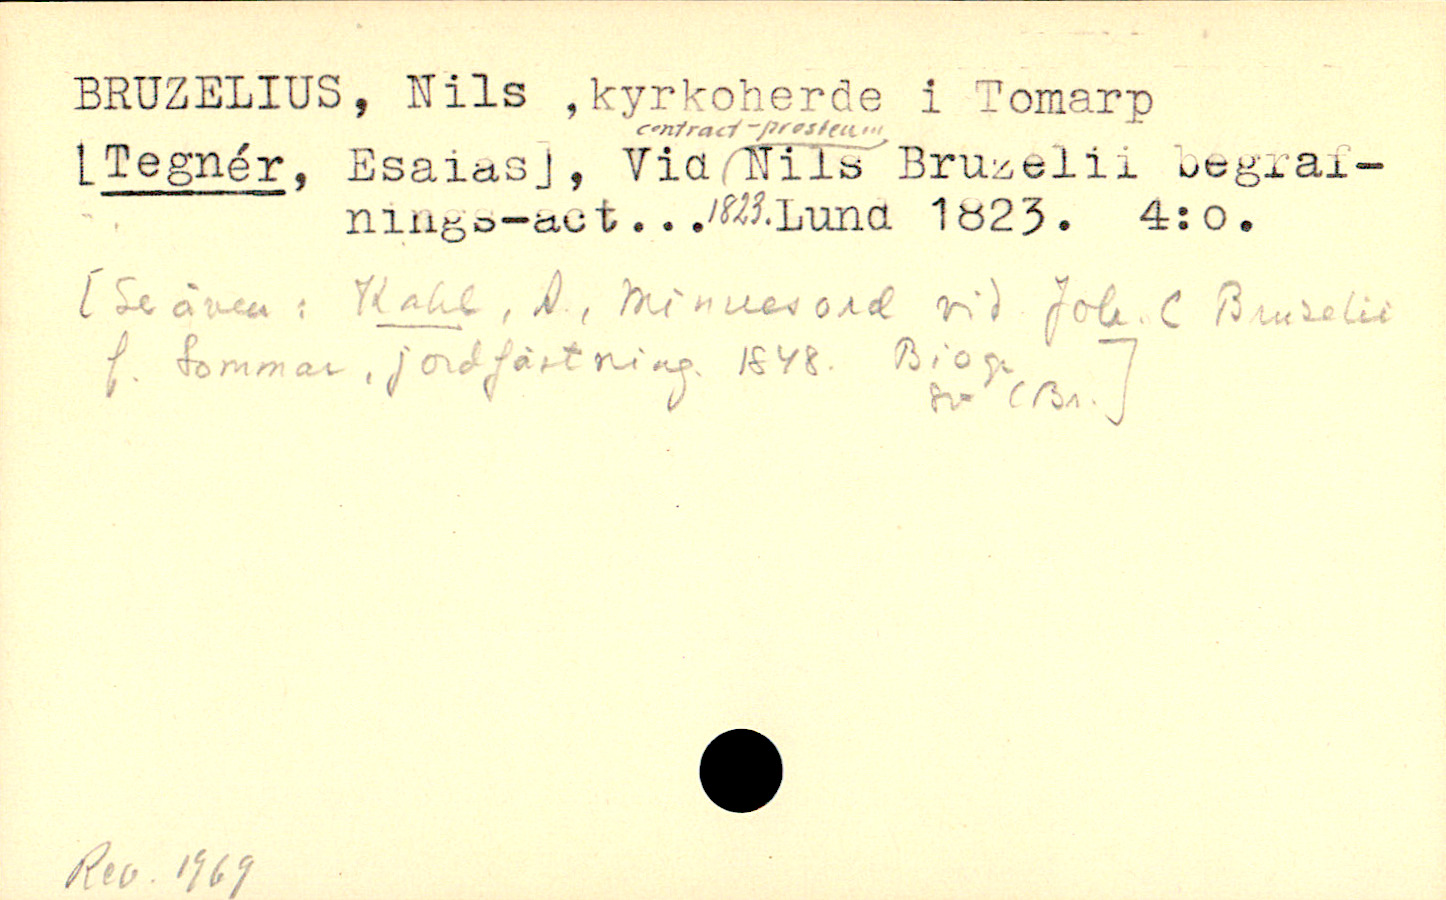 BRUZELIUS, Nils ,kyrkoherde i Tomarp
contract-prosten
[Tegnér, Esaias], Vid Nils Bruzelii begraf-
nings-act...1823.Lund 1823. 4:o.
[Se även: Kahl, A., Minnesord vid Joh. C Bruzelii
f. Sommar, jordfästning. 1848. Biogr
sv (Br.]
Rev. 1969